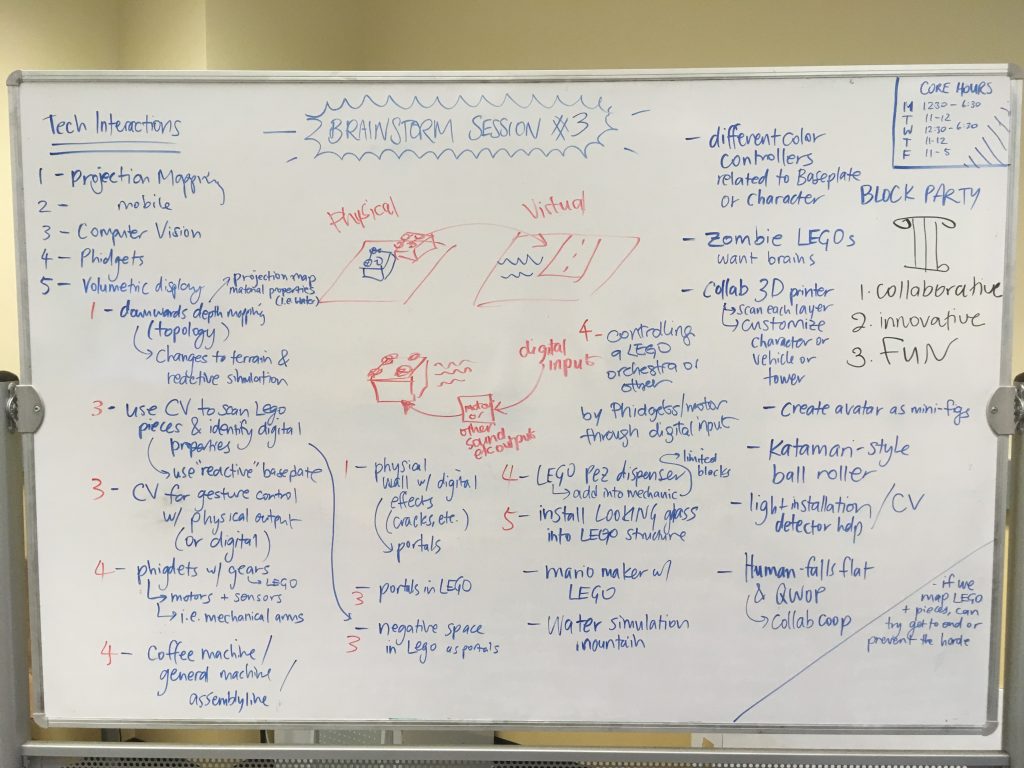 Tech Interactions
1 - Projection Mapping
2 - mobile
3 - Computer Vision
4 - Phidgets
5 - Volumetric display
projection map
material properties
(i.e. water)
1 - downwards depth mapping
(topology)
Changes to terrain &
reactive simulation
3 - use CV to scan Lego
pieces & identify digital
properties
use "reactive" baseplate
3 - CV for gesture control
w/ physical output
(or digital)
4 - phigdets w/ gears
LEGO
motors + sensors
i.e. mechanical arms
4 - Coffee machine/
general machine/
assemblyline
BRAINSTORM SESSION #3
Physical
Virtual
digital
input
motor
or
other
sound
etc outputs
1 - physial
wall w/ digital
effects
(cracks, etc.)
portals
3 - portals in LEGO
3 - negative space
in Lego as portals
4 - controlling
a LEGO
orchestra or
other
by Phidgets/motor
through digital input
4 - LEGO PEZ dispenser
limited
blocks
add into mechanic
5 - install LOOKING glass
into LEGO structure
- mario maker w/
LEGO
- Water simulation
mountain
- different color
controllers
related to Baseplate
or character
- Zombie LEGOs
want brains
- Collab 3D printer
scan each layer
customize
character or
vehicle or
tower
- create avatar as mini-figs
- Katamari-style
ball roller
- light installation / CV
detector help
- Human-falls flat
& QWOP
Collab coop
CORE HOURS
M 1230 - 6:30
T 11-12
W 12:30-6:30
T 11-12
F 11-5
BLOCK PARTY
1. collaborative
2. innovative
3. FUN
- if we
map LEGO
+ pieces, can
try get to end or
prevent the horde